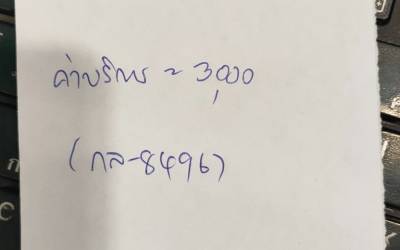 ค่าบริการ ~ 3,000
(กล-8496)